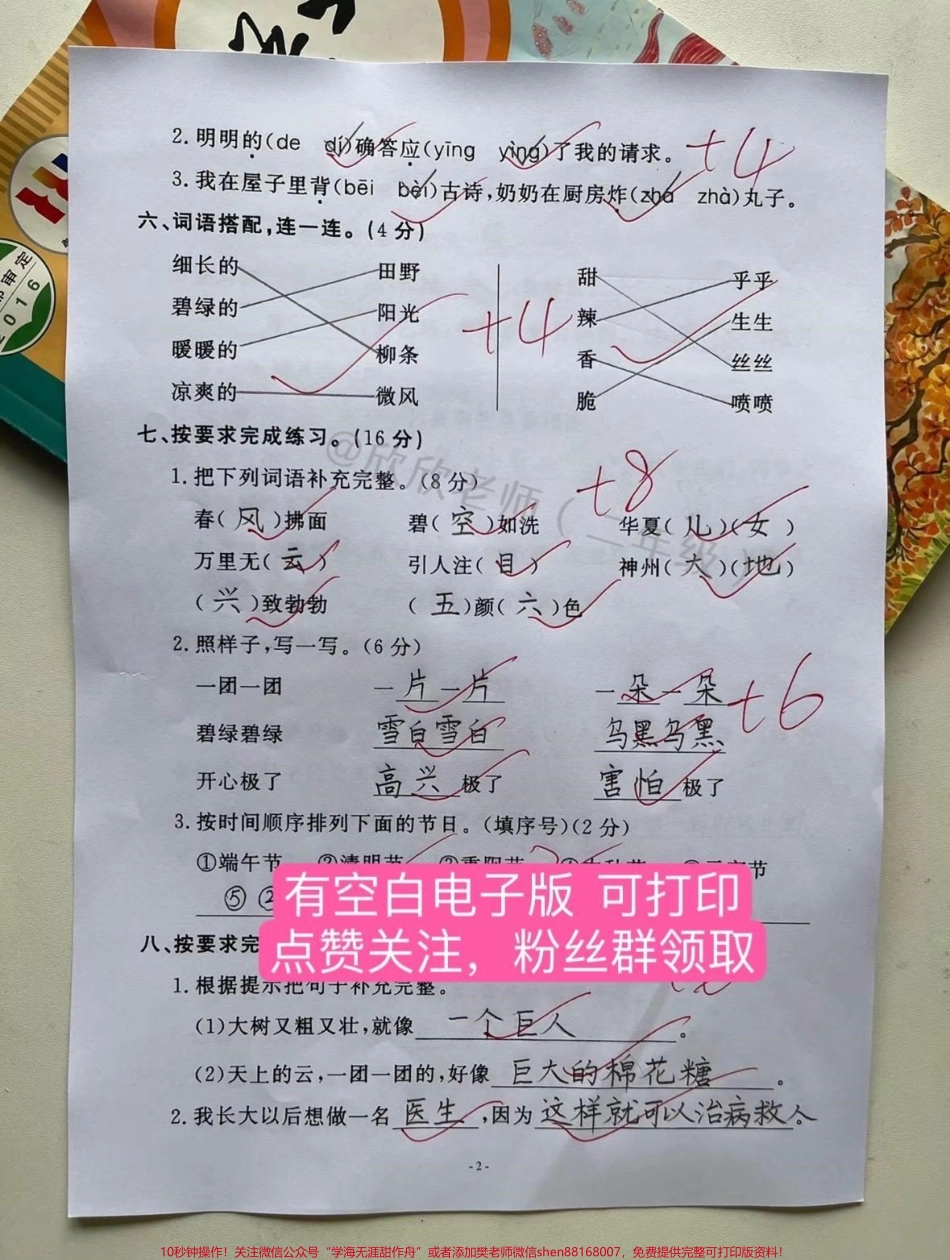 2.明明的(de dí)确答应(yīng yìng)了我的请求。 +4
3.我在屋子里背(bēi bèi)古诗,奶奶在厨房炸(zhá zhà)丸子。
六、词语搭配,连一连。(4分)
细长的 田野 甜 乎乎
碧绿的 阳光 +4 辣 生生
暖暖的 柳条 香 丝丝
凉爽的 微风 脆 喷喷
七、按要求完成练习。(16分)
@欣欣老师(二年级)
1.把下列词语补充完整。(8分) +8
春(风)拂面 碧(空)如洗 华夏(儿)(女)
万里无(云) 引人注(目) 神州(大)(地)
(兴)致勃勃 (五)颜(六)色
2.照样子,写一写。(6分)
一团一团 一片一片 一朵一朵 +6
碧绿碧绿 雪白雪白 乌黑乌黑
开心极了 高兴极了 害怕极了
3.按时间顺序排列下面的节日。(填序号)(2分)
①端午节 ②清明节 ③重阳节
⑤ ②
有空白电子版 可打印
点赞关注，粉丝群领取
八、按要求完
1.根据提示把句子补充完整。
(1)大树又粗又壮,就像一个巨人。
(2)天上的云,一团一团的,好像巨大的棉花糖。
2.我长大以后想做一名医生,因为这样就可以治病救人。
-2-
10秒钟操作！关注微信公众号“学海无涯甜作舟”或者添加樊老师微信shen88168007，免费提供完整可打印版资料！
审定
2016